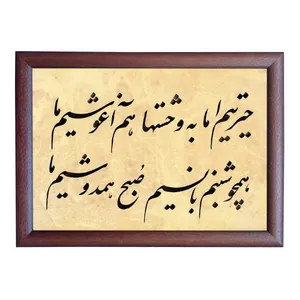 حیرتیم اما به وحشتها هم آغوشیم ما
همچو شبنم با نسیم صبح همدوشیم ما